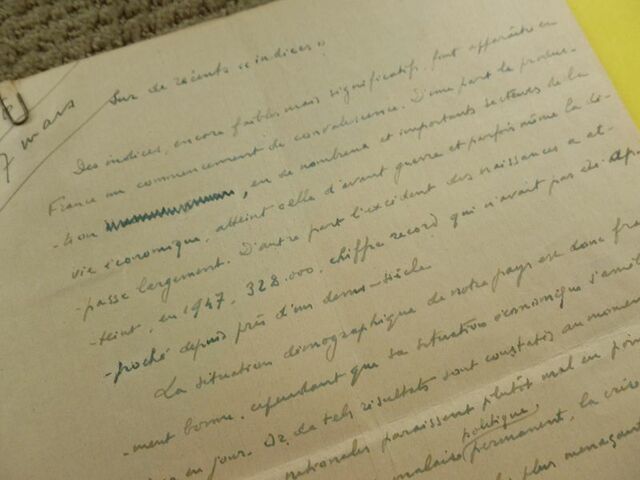 7 mars
Sur de récents « indices »
Des indices, encore faibles mais significatifs, font apparaître en
France un commencement de convalescence. D'une part la produc-
-tion , en de nombreux et importants secteurs de la
vie économique, atteint celle d'avant guerre et parfois même la dé-
-passe largement. D'autre part l'excédent des naissances a at-
-teint, en 1947, 328.000, chiffre record qui n'avait pas été ap-
-proché depuis près d'un demi-siècle.
La situation démographique de notre pays est donc fran
-ment bonne, cependant que sa situation économique s'améli
en jour. Or, de tels résultats sont constatés au moment
nationales paraissent plutôt mal en poin
malaise politique permanent, la crise
plus menaçant